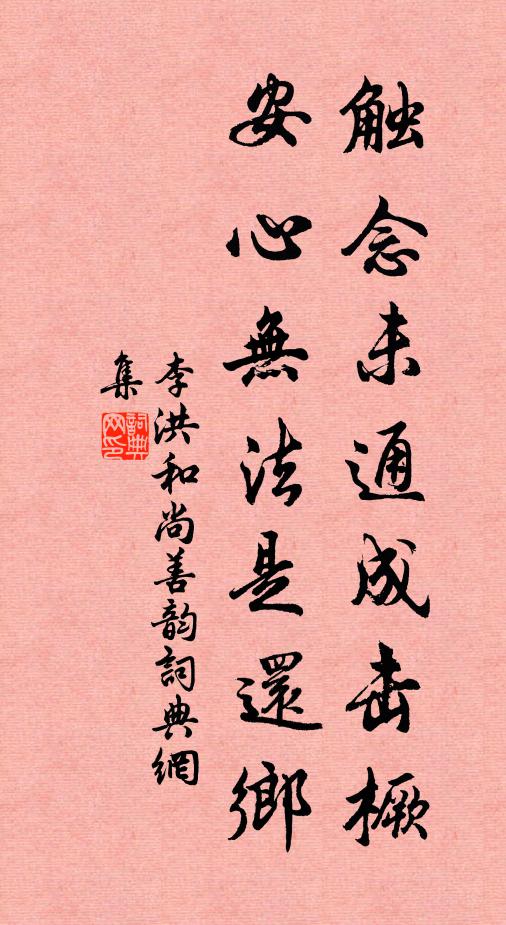 触念未通成击橛
安心無法是還鄉
李洪和尚善韵詞典網
集
詞典网印